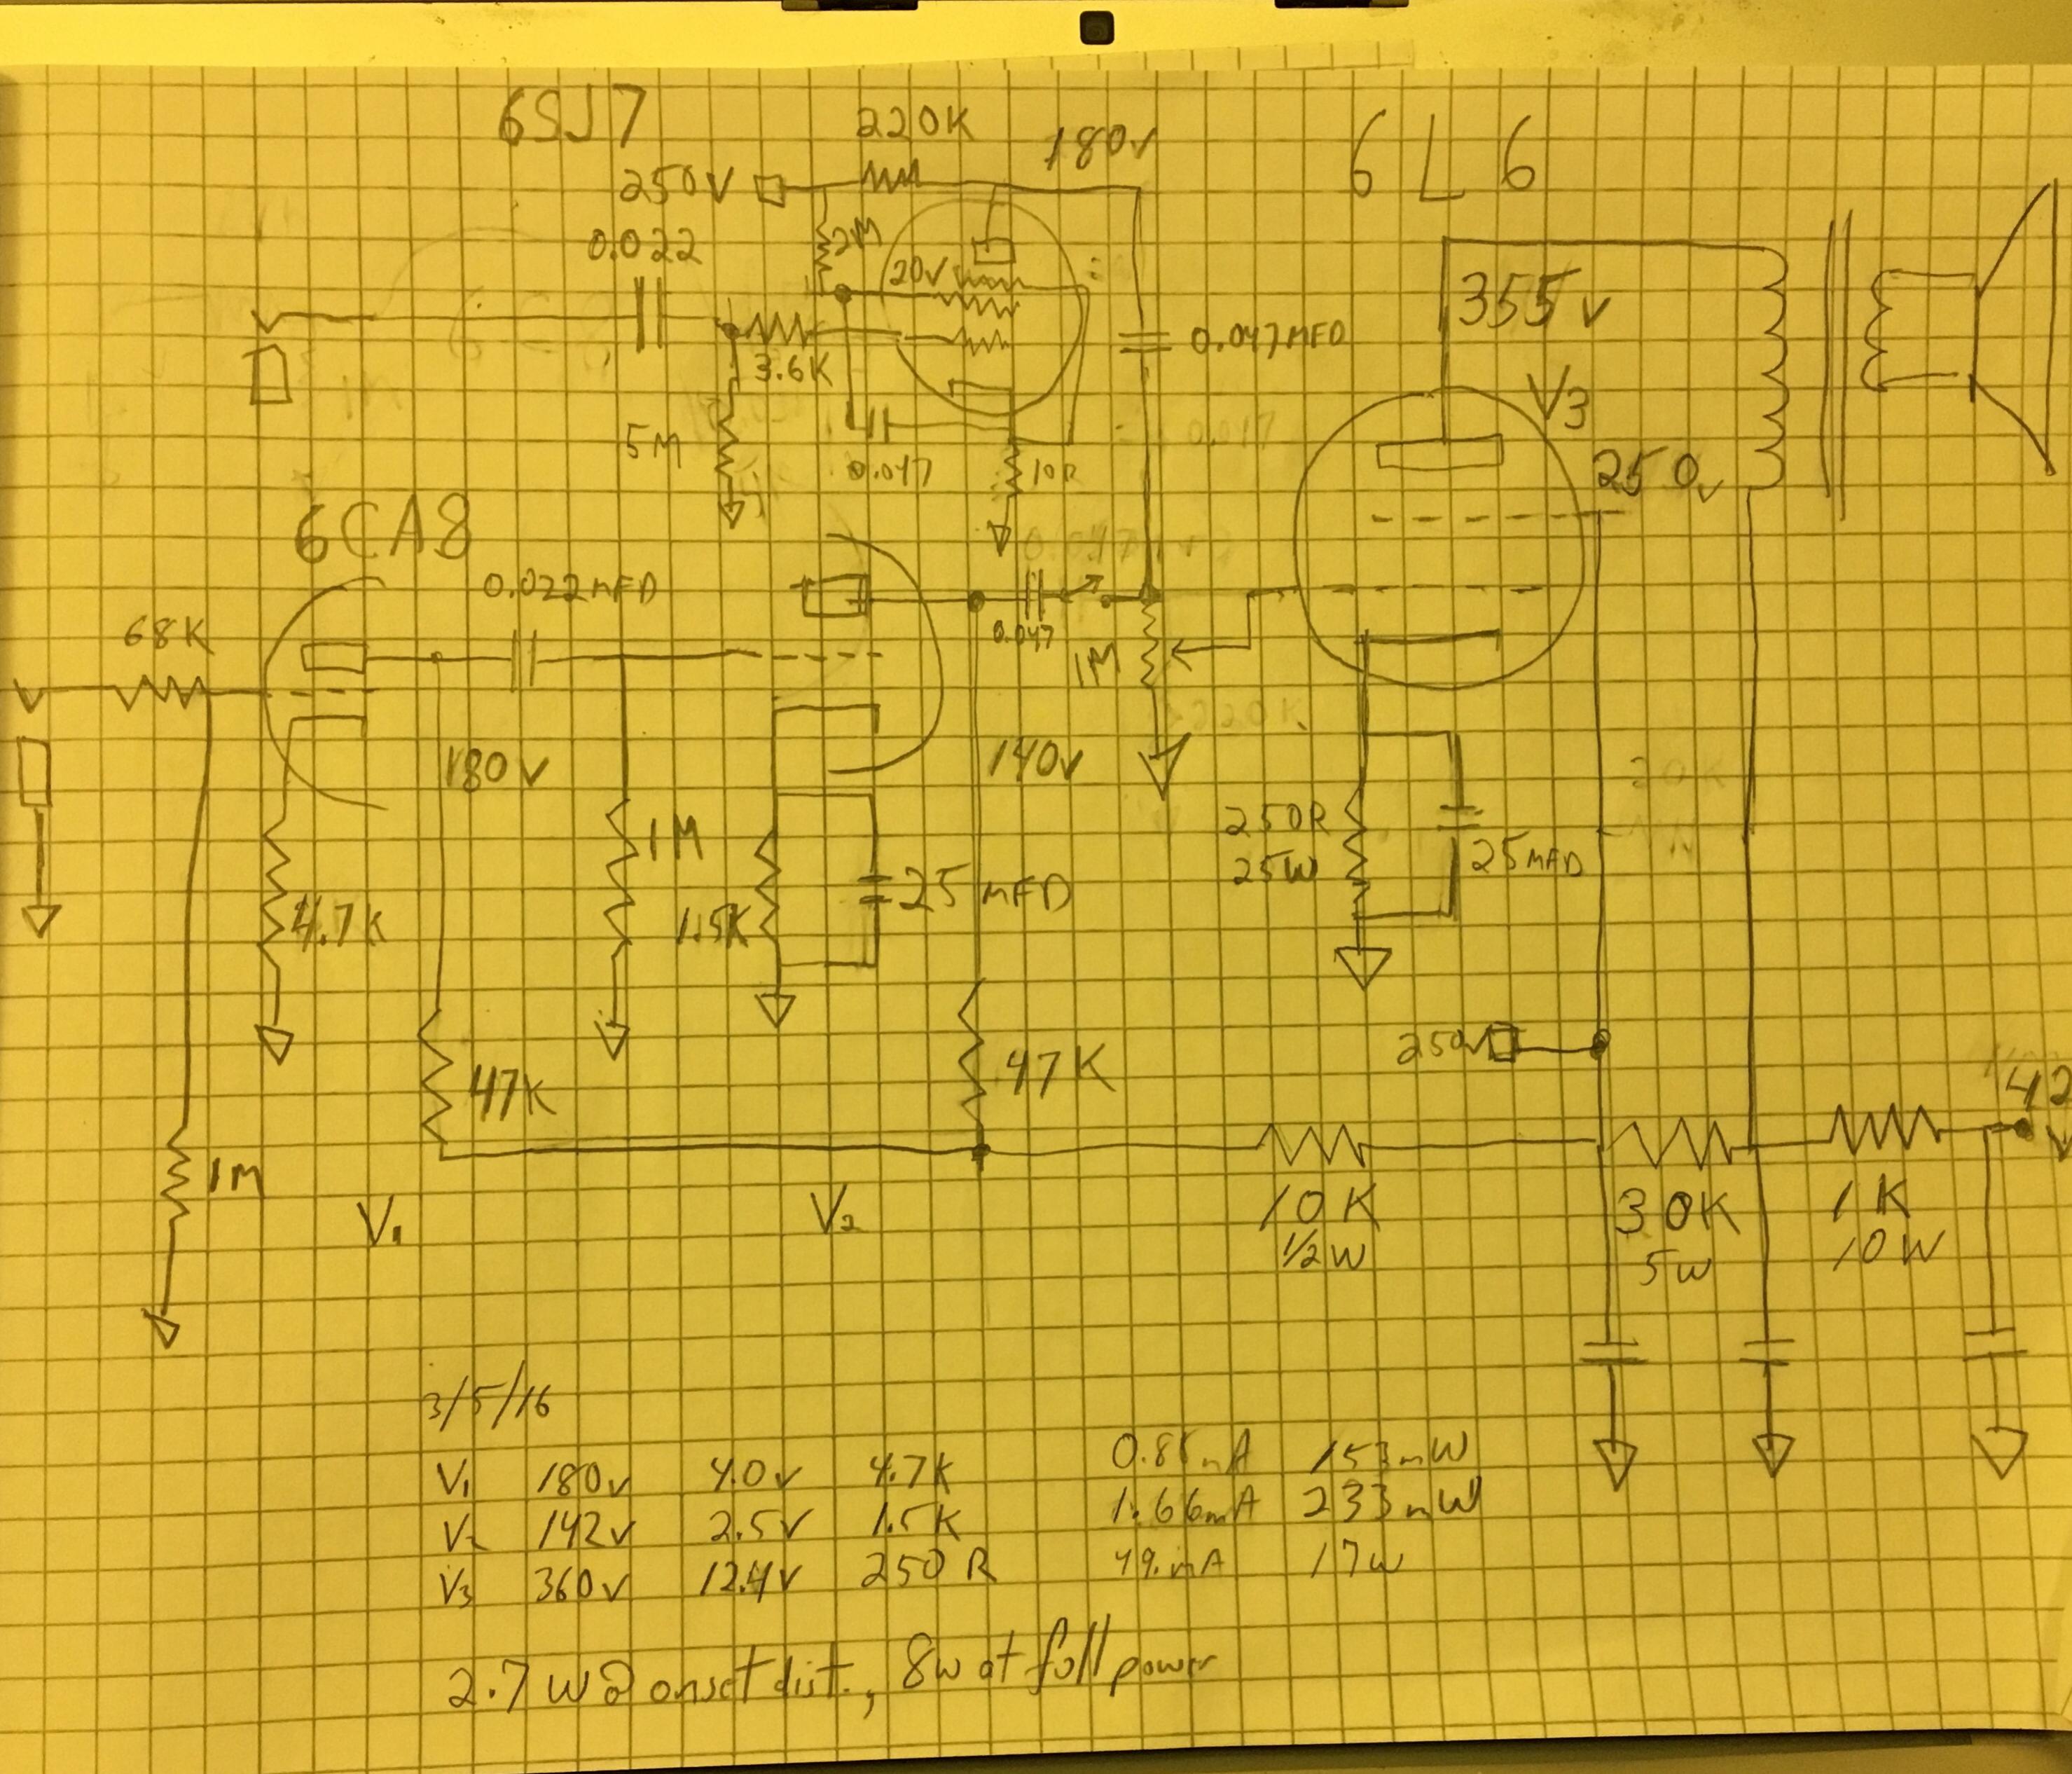 6SJ7
220K
180v
6L6
250V
2M
0.022
20V
355v
0.047MFD
3.6K
V3
5M
0.047
10R
250v
6CA8
0.022MFD
68K
0.047
1M
180V
140v
250R
25W
25MFD
1M
4.7K
1.5K
25MFD
47K
47K
250V
42
V
1M
V1
V2
10K
1/2W
30K
5W
1K
10W
3/5/16
V1 180v 4.0v 4.7K 0.85mA 153mW
V2 142v 2.5v 1.5K 1.66mA 233mW
V3 360v 12.4v 250R 49.mA 17W
2.7W @ onset dist., 8w at full power